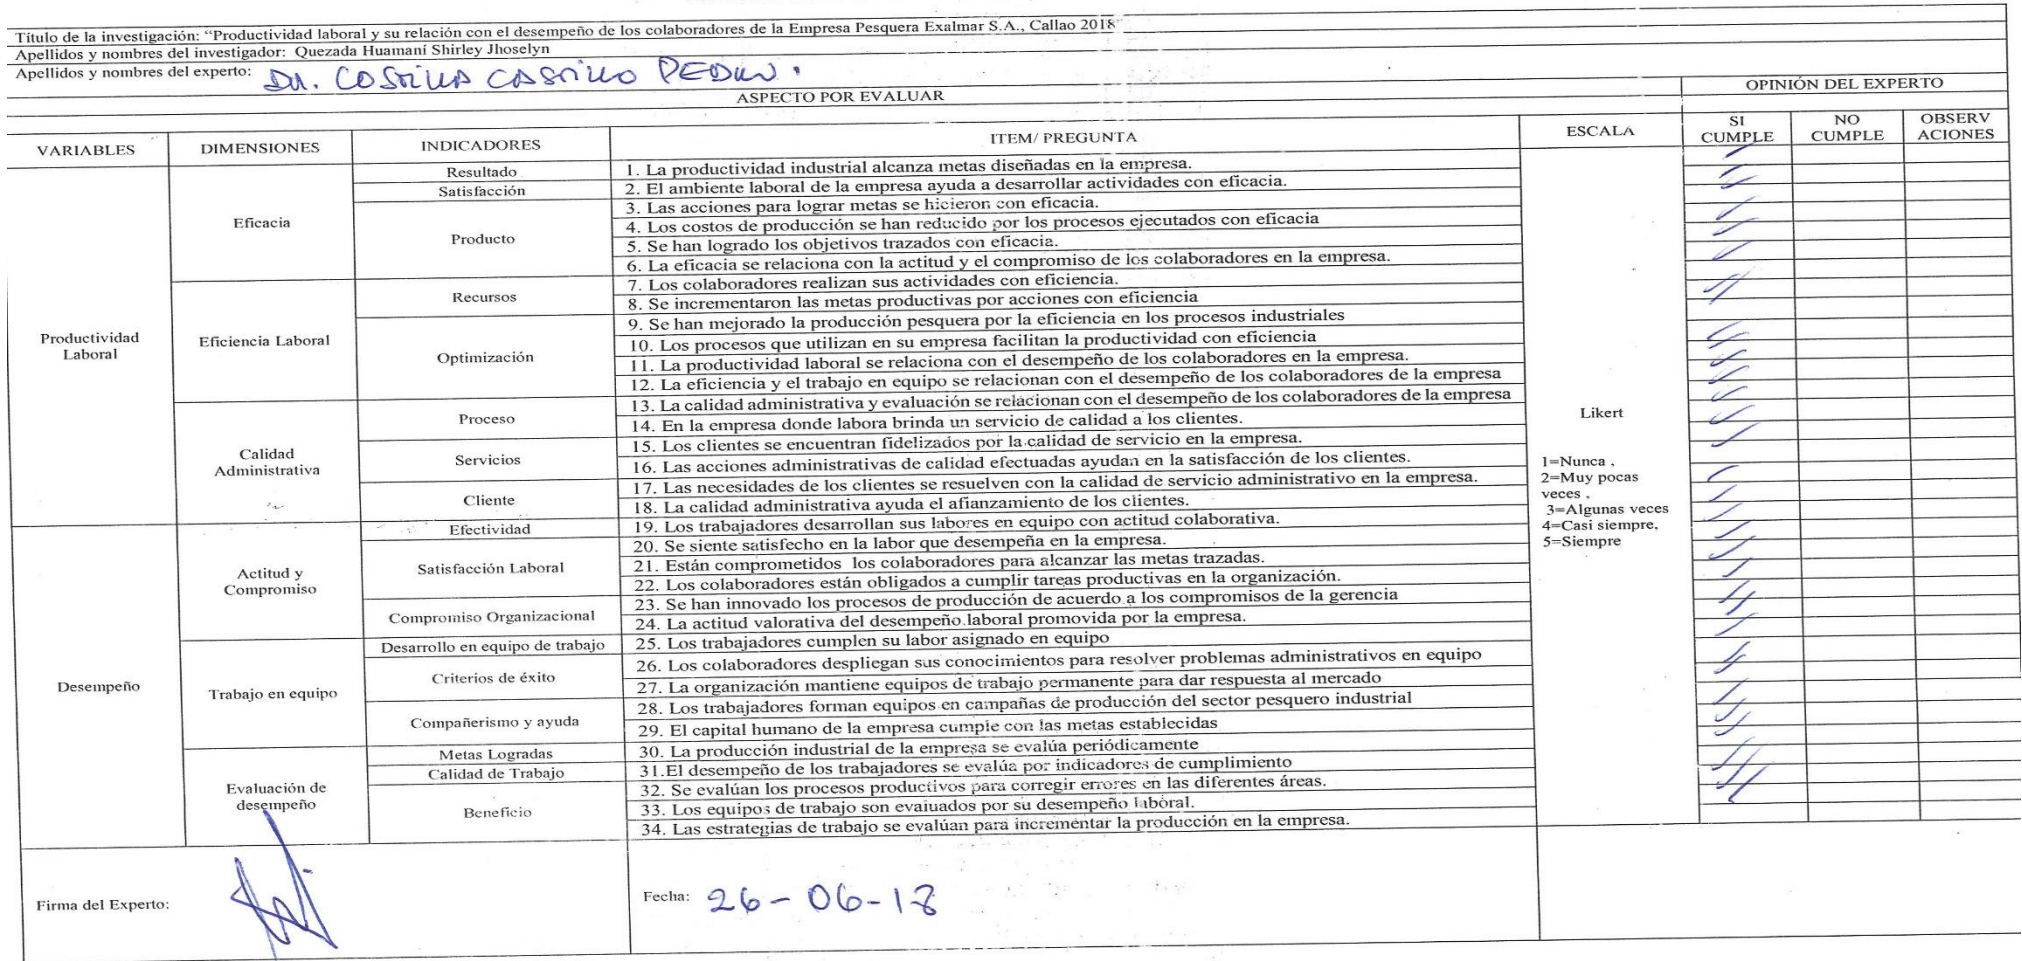 Título de la investigación: “Productividad laboral y su relación con el desempeño de los colaboradores de la Empresa Pesquera Exalmar S.A., Callao 2018”
Apellidos y nombres del investigador: Quezada Huamaní Shirley Jhoselyn
Apellidos y nombres del experto: DR. COSTILLA CASTILLO PEDRO.
ASPECTO POR EVALUAR
OPINIÓN DEL EXPERTO
VARIABLES DIMENSIONES INDICADORES ITEM/ PREGUNTA ESCALA SI CUMPLE NO CUMPLE OBSERV ACIONES
Productividad Laboral
Eficacia
Resultado
1. La productividad industrial alcanza metas diseñadas en la empresa.
Satisfacción
2. El ambiente laboral de la empresa ayuda a desarrollar actividades con eficacia.
Producto
3. Las acciones para lograr metas se hicieron con eficacia.
4. Los costos de producción se han reducido por los procesos ejecutados con eficacia
5. Se han logrado los objetivos trazados con eficacia.
6. La eficacia se relaciona con la actitud y el compromiso de los colaboradores en la empresa.
Eficiencia Laboral
Recursos
7. Los colaboradores realizan sus actividades con eficiencia.
8. Se incrementaron las metas productivas por acciones con eficiencia
Optimización
9. Se han mejorado la producción pesquera por la eficiencia en los procesos industriales
10. Los procesos que utilizan en su empresa facilitan la productividad con eficiencia
11. La productividad laboral se relaciona con el desempeño de los colaboradores en la empresa.
12. La eficiencia y el trabajo en equipo se relacionan con el desempeño de los colaboradores de la empresa
Calidad Administrativa
Proceso
13. La calidad administrativa y evaluación se relacionan con el desempeño de los colaboradores de la empresa
14. En la empresa donde labora brinda un servicio de calidad a los clientes.
Servicios
15. Los clientes se encuentran fidelizados por la calidad de servicio en la empresa.
16. Las acciones administrativas de calidad efectuadas ayudan en la satisfacción de los clientes.
Cliente
17. Las necesidades de los clientes se resuelven con la calidad de servicio administrativo en la empresa.
18. La calidad administrativa ayuda el afianzamiento de los clientes.
Desempeño
Actitud y Compromiso
Efectividad
19. Los trabajadores desarrollan sus labores en equipo con actitud colaborativa.
Satisfacción Laboral
20. Se siente satisfecho en la labor que desempeña en la empresa.
21. Están comprometidos los colaboradores para alcanzar las metas trazadas.
22. Los colaboradores están obligados a cumplir tareas productivas en la organización.
Compromiso Organizacional
23. Se han innovado los procesos de producción de acuerdo a los compromisos de la gerencia
24. La actitud valorativa del desempeño laboral promovida por la empresa.
Trabajo en equipo
Desarrollo en equipo de trabajo
25. Los trabajadores cumplen su labor asignado en equipo
Criterios de éxito
26. Los colaboradores despliegan sus conocimientos para resolver problemas administrativos en equipo
27. La organización mantiene equipos de trabajo permanente para dar respuesta al mercado
Compañerismo y ayuda
28. Los trabajadores forman equipos en campañas de producción del sector pesquero industrial
29. El capital humano de la empresa cumple con las metas establecidas
Evaluación de desempeño
Metas Logradas
30. La producción industrial de la empresa se evalúa periódicamente
Calidad de Trabajo
31.El desempeño de los trabajadores se evalúa por indicadores de cumplimiento
Beneficio
32. Se evalúan los procesos productivos para corregir errores en las diferentes áreas.
33. Los equipos de trabajo son evaluados por su desempeño laboral.
34. Las estrategias de trabajo se evalúan para incrementar la producción en la empresa.
Likert
1=Nunca ,
2=Muy pocas
veces ,
3=Algunas veces
4=Casi siempre,
5=Siempre
Firma del Experto:
Fecha: 26-06-18